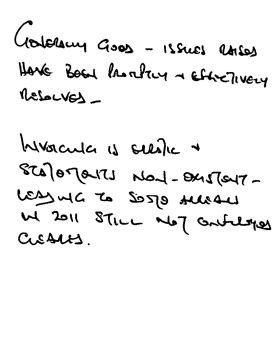 GENERALLY GOOD - ISSUES RAISED
HAVE BEEN PROMPTLY + EFFECTIVELY
RESOLVED -
INVOICING IS ERRATIC +
STATEMENTS NON-EXISTENT -
LEADING TO SOME ARREARS
IN 2011 STILL NOT CONFIRMED
CLEARED.